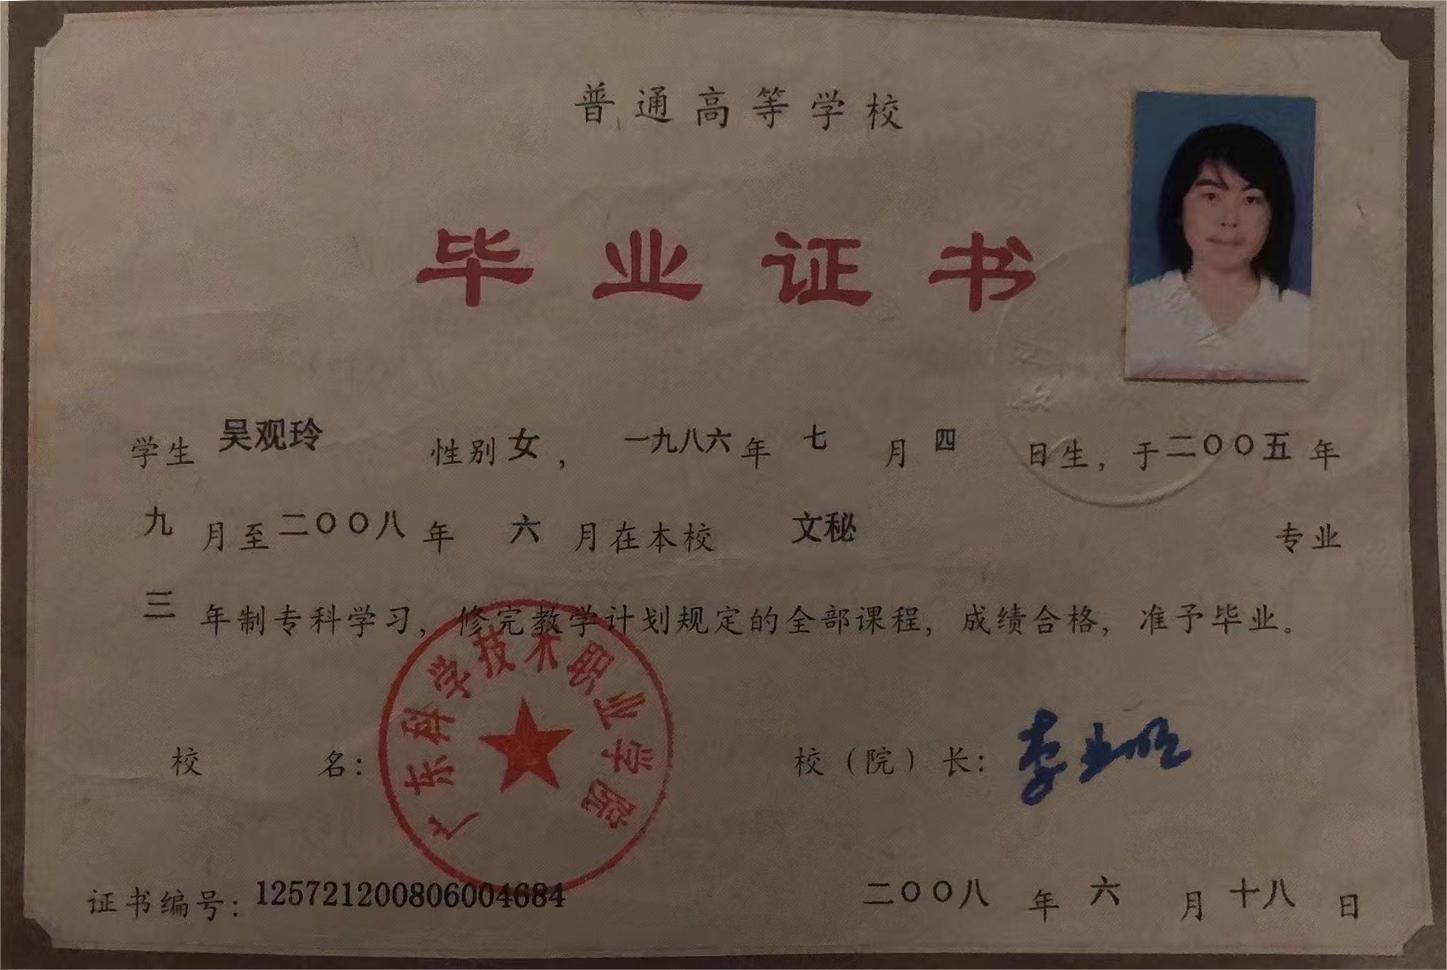 普通高等学校
毕业证书
学生 吴观玲 性别 女， 一九八六 年 七 月 四 日生，于 二〇〇五 年
九 月至 二〇〇八 年 六 月在本校 文秘 专业
三 年制专科学习，修完教学计划规定的全部课程，成绩合格，准予毕业。
广东科学技术职业学院
校 名： 校（院）长：
证书编号：125721200806004684 二〇〇八 年 六 月 十八 日